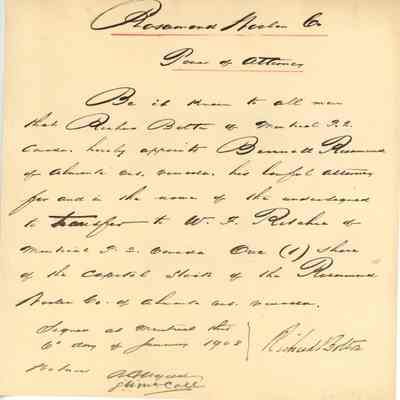 Rosamond Woolen Co
Power of Attorney
Be it known to all men
that Richd Bolton of Montreal P.Q.
Canada, hereby appoints Bennett Rosamond
of Almonte Ont. Canada, his lawful attorney
for and in the name of the undersigned
to transfer to W. F. Ritchie of
Montreal P.Q. Canada One (1) Share
of the Capital Stock of the Rosamond
Woolen Co. of Almonte Ont. Canada.
Signed at Montreal this
6th day of January 1908
Richard Bolton
Witness